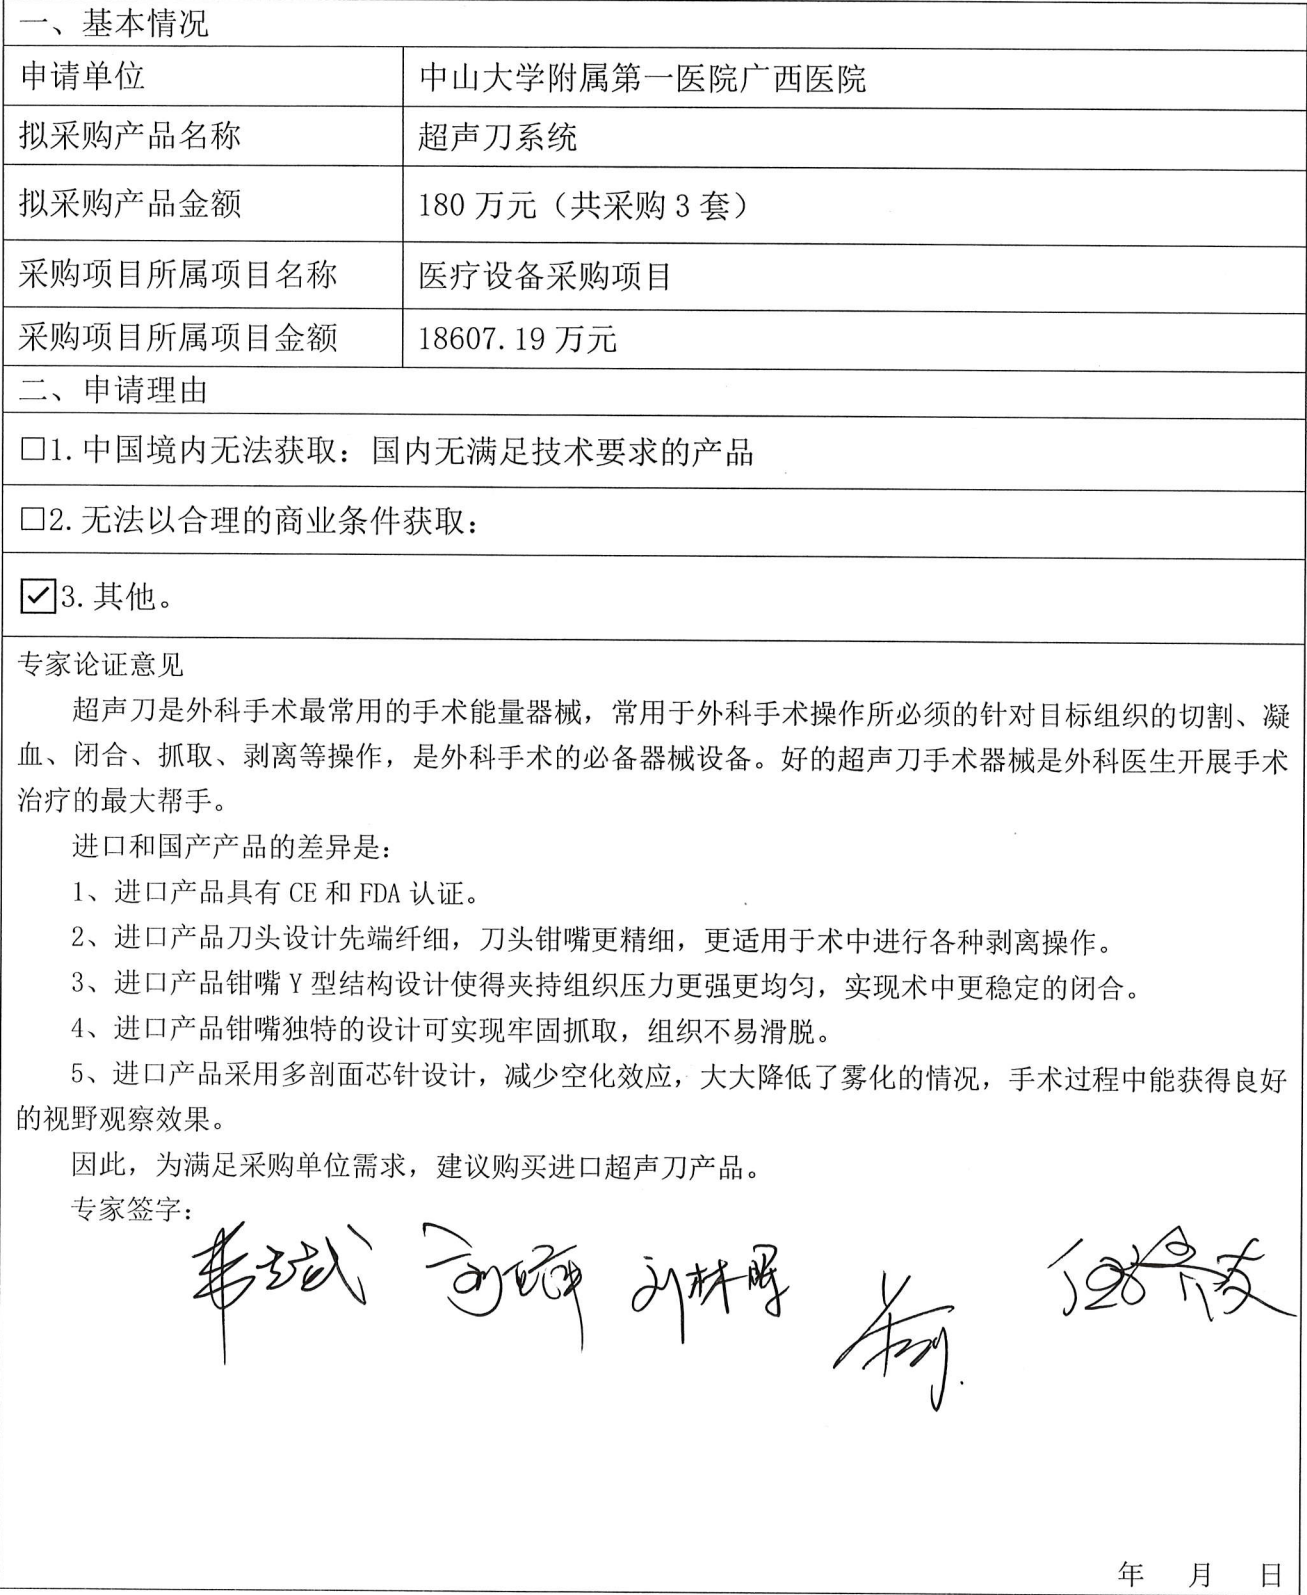 一、基本情况
申请单位 中山大学附属第一医院广西医院
拟采购产品名称 超声刀系统
拟采购产品金额 180 万元（共采购 3 套）
采购项目所属项目名称 医疗设备采购项目
采购项目所属项目金额 18607.19 万元
二、申请理由
□1.中国境内无法获取：国内无满足技术要求的产品
□2.无法以合理的商业条件获取：
☑3.其他。
专家论证意见
超声刀是外科手术最常用的手术能量器械，常用于外科手术操作所必须的针对目标组织的切割、凝
血、闭合、抓取、剥离等操作，是外科手术的必备器械设备。好的超声刀手术器械是外科医生开展手术
治疗的最大帮手。
进口和国产产品的差异是：
1、进口产品具有 CE 和 FDA 认证。
2、进口产品刀头设计先端纤细，刀头钳嘴更精细，更适用于术中进行各种剥离操作。
3、进口产品钳嘴 Y 型结构设计使得夹持组织压力更强更均匀，实现术中更稳定的闭合。
4、进口产品钳嘴独特的设计可实现牢固抓取，组织不易滑脱。
5、进口产品采用多剖面芯针设计，减少空化效应，大大降低了雾化的情况，手术过程中能获得良好
的视野观察效果。
因此，为满足采购单位需求，建议购买进口超声刀产品。
专家签字：
年 月 日